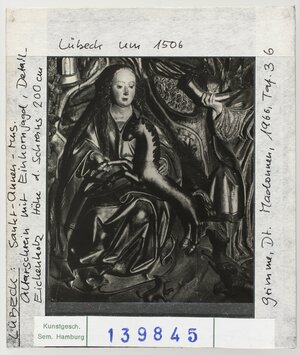 Lübeck um 1506
LÜBECK: Sankt-Annen-Mus.
Altarschrein mit Einhornjagd, Detail
Eichenholz Höhe d. Schreins 200 cm
Grimme, Dt. Madonnen, 1966, Taf. 36
Kunstgesch.
Sem. Hamburg
139845